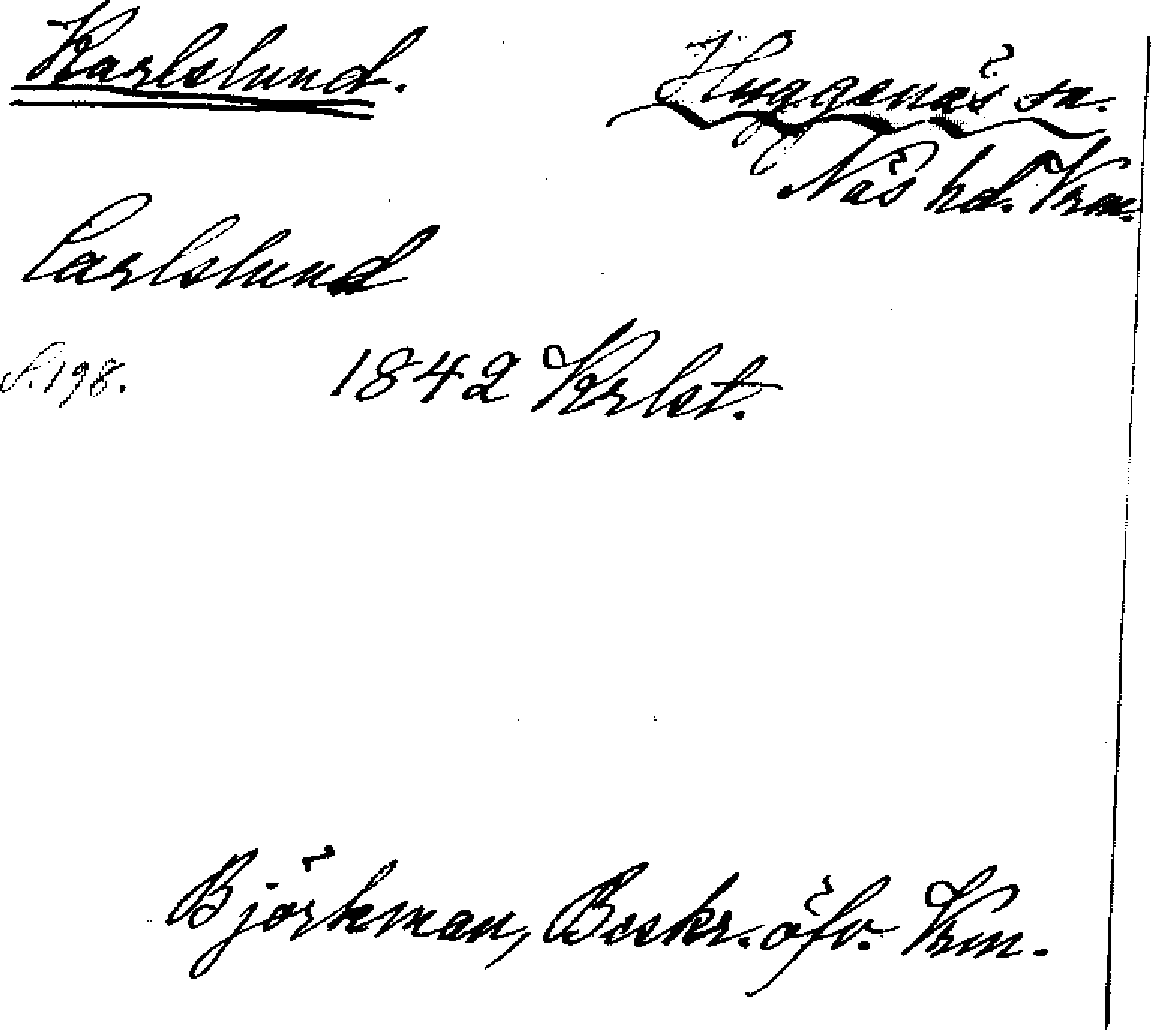 Karlslund.
Huggenäs sn.
Näs hd. Vrm.
Carlslund
s. 198.
1842 Krlst.
Björkman, Beskr. öfv. Vrm.